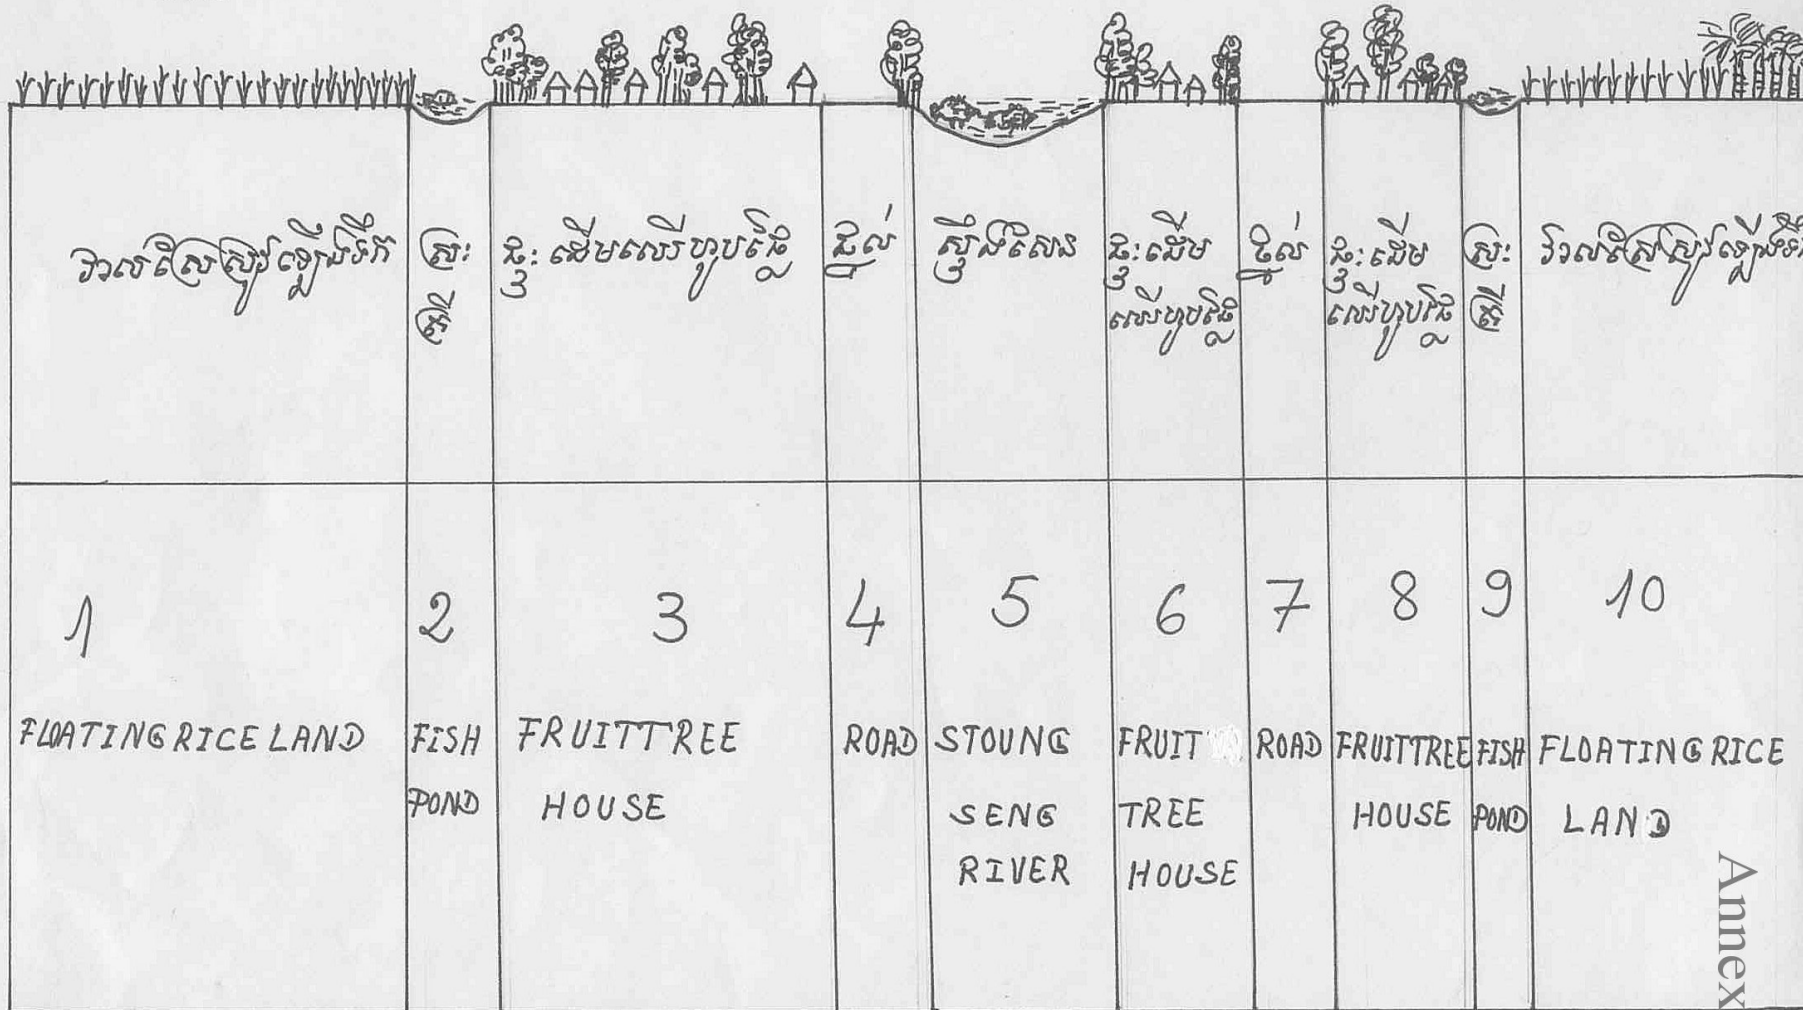 វាលស្រែស្រូវឡើងទឹក
ស្រះ
ត្រី
ផ្ទះ ដើមឈើហូបផ្លែ
ផ្លូល់
ស្ទឹងសែន
ផ្ទះ ដើម
ឈើហូបផ្លែ
ផ្លូល់
ផ្ទះ ដើម
ឈើហូបផ្លែ
ស្រះ
ត្រី
វាលស្រែស្រូវឡើងទឹក
1
2
3
4
5
6
7
8
9
10
FLOATING RICE LAND
FISH
POND
FRUITTREE
HOUSE
ROAD
STOUNG
SENG
RIVER
FRUIT
TREE
HOUSE
ROAD
FRUITTREE
HOUSE
FISH
POND
FLOATING RICE
LAND
Annex